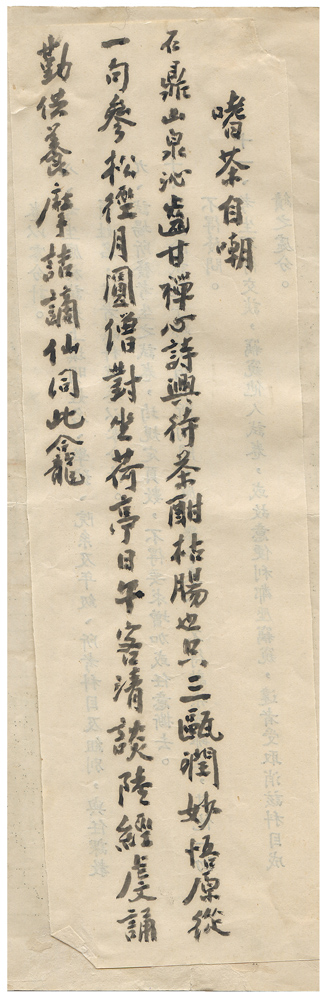 嗜茶自嘲
石鼎山泉沁齒甘禪心詩興待茶酣枯腸也只三甌潤妙悟原從
一句參松徑月圓僧對坐荷亭日午客清談陸經虔誦
勤供養摩詰謫仙同此龕